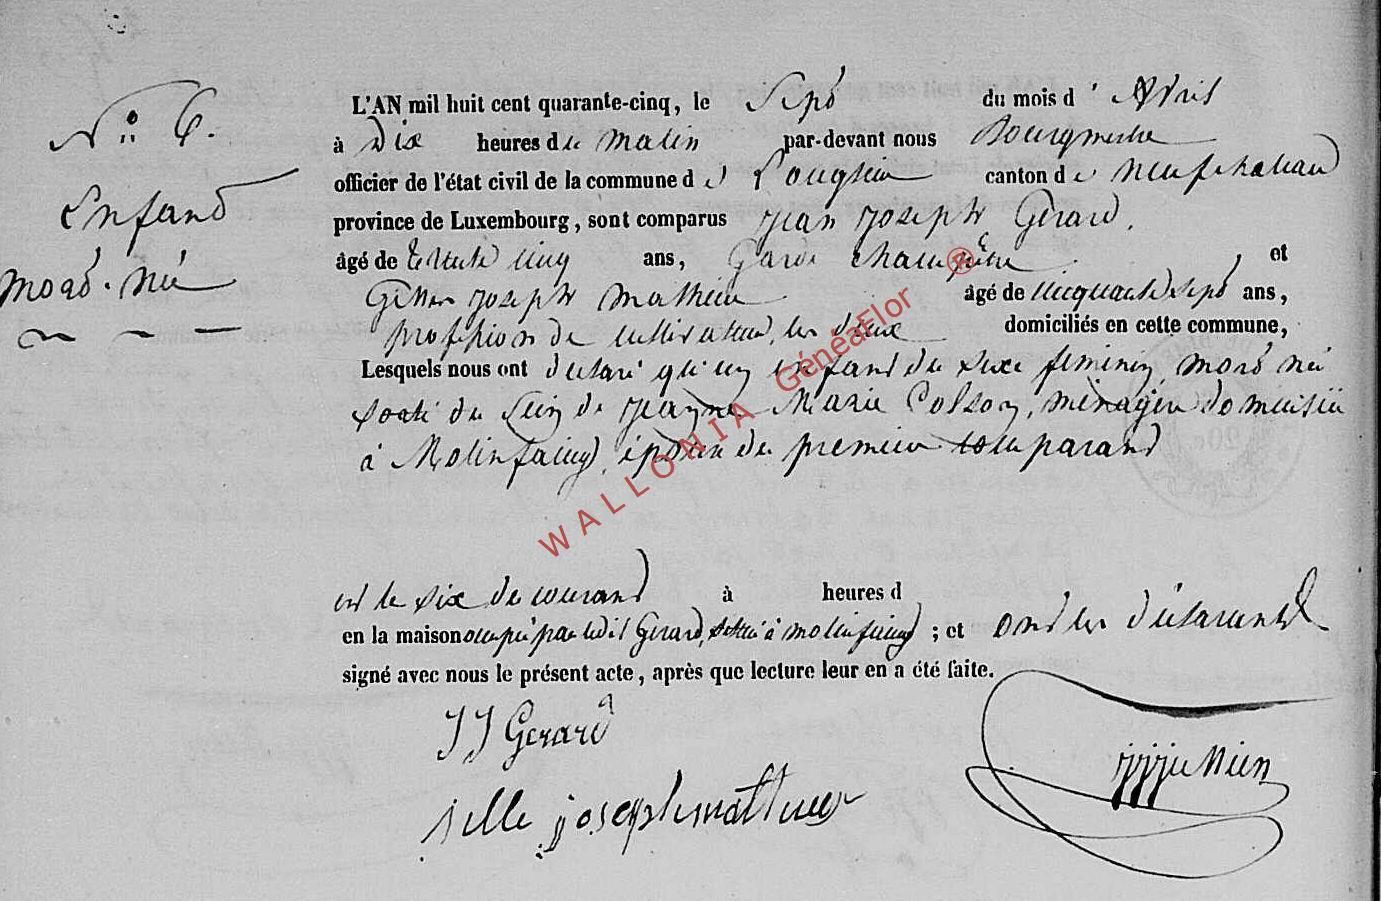 N° 6.
Enfant
mort-né
L'AN mil huit cent quarante-cinq, le Sept du mois d'Avril
à Dix heures du matin par-devant nous Bourgmestre
officier de l'état civil de la commune de Longlier canton de neufchateau
province de Luxembourg, sont comparus Jean Joseph Gérard,
âgé de trente cinq ans, Garde champêtre, et
Joseph Mathieu âgé de cinquante sept ans,
profession de cultivateur, les deux domiciliés en cette commune,
Lesquels nous ont déclaré qu'un enfant du sexe feminin, mort né
sorti du sein de Jeanne Marie Colson, ménagère domiciliée
à Molinfaing, épouse du premier comparant
est le six du courant à heures d
en la maison occupée par ledit Gerard, située à molinfaing ; et ont les déclarants
signé avec nous le présent acte, après que lecture leur en a été faite.
JJ Gerard
joseph mathieu
WALLONIA GénéaFlor
®